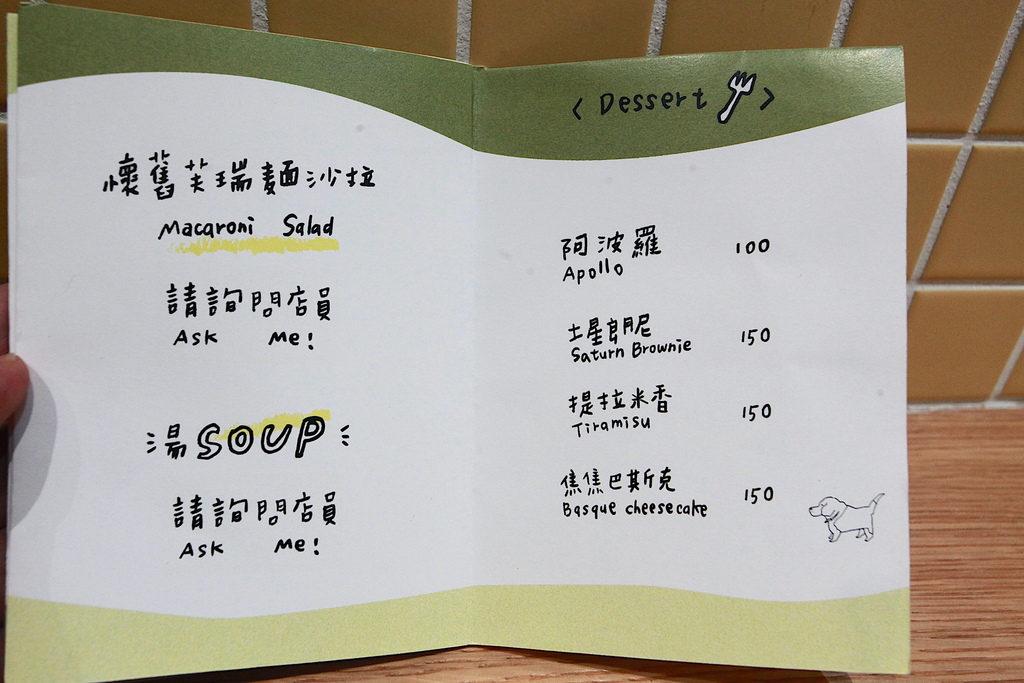 懷舊芙瑞麵沙拉
Macaroni Salad
請詢問店員
Ask Me!
湯 SOUP
請詢問店員
Ask Me!
< Dessert >
阿波羅 100
Apollo
土星朗尼 150
Saturn Brownie
提拉米香 150
Tiramisu
焦焦巴斯克 150
Basque cheesecake